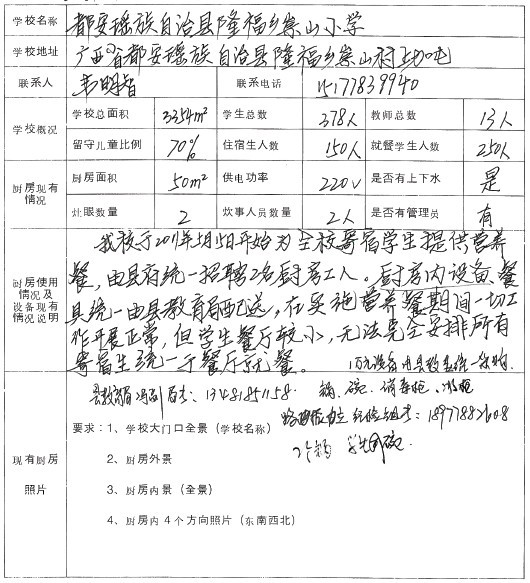 学校名称 都安瑶族自治县隆福乡崇山小学
学校地址 广西省都安瑶族自治县隆福乡崇山村
联系人 韦明智 联系电话 15177839940
学校概况 学校总面积 3354m² 学生总数 378人 教师总数 13人
留守儿童比例 70% 住宿生人数 150人 就餐学生人数 250人
厨房现有情况 厨房面积 50m² 供电功率 220v 是否有上下水 是
灶眼数量 2 炊事人员数量 2人 是否有管理员 有
厨房使用情况及设备现有情况说明
我校于2011年5月15日开始为全校寄宿学生提供营养
餐,由县府统一招聘2名厨房工人。厨房内设备、餐
具统一由县教育局配送,在实施营养餐期间一切工
作开展正常,但学生餐厅较小,无法完全安排所有
寄宿生统一于餐厅就餐。
县教育局 局长:13481851158 锅、碗、消毒柜、冰柜
18977882608
现有厨房照片
要求:1、学校大门口全景(学校名称)
2、厨房外景
3、厨房内景(全景)
4、厨房内4个方向照片(东南西北)